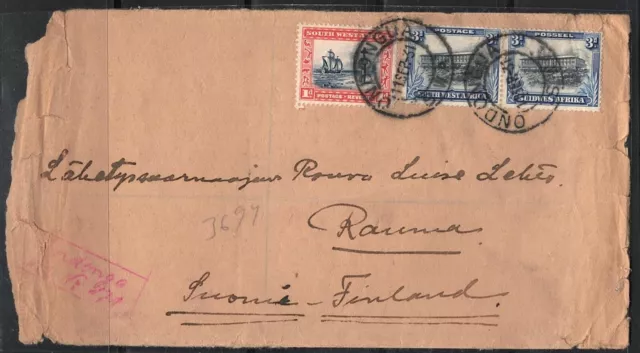 SOUTH WEST AFRICA
1d
POSTAGE
POSTAGE
3d 3d
SOUTH WEST AFRICA
POSSEEL
3d 3d
SUIDWES AFRIKA
Lähetyssaarnaajan Rouva Luise Lehto.
3697
Rauma
Suomi - Finland.